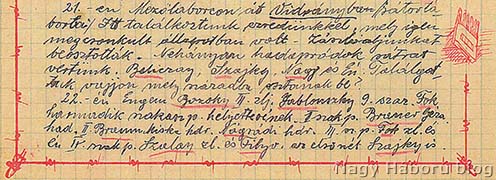 21.-én Mezőlaborcon át Vidrányban Sátorla
borba! Itt találkoztunk ezredünkkel, mely igen
megcsonkult állapotban volt. Zászlóaljunkat
beosztották. Néhányan hadapródok sátrat
vertünk. Beliczay, Szajky, Nagy és én. Találgat
tuk vajjon mely századba osztanak be?
22.-én Engem Boroky III. zlj. Jablonszky 9. száz. Fok
harmadik nak. p. helyettesének. I nak. p. Brewer Géza
had. II. Braum Kiska hdr. Nógrádi hdr. III. n. p. Fok zl. és
én IV. nak p. Szalay zl. és Filyo. az elsőnét Szajky is.
Nagy Háború blog